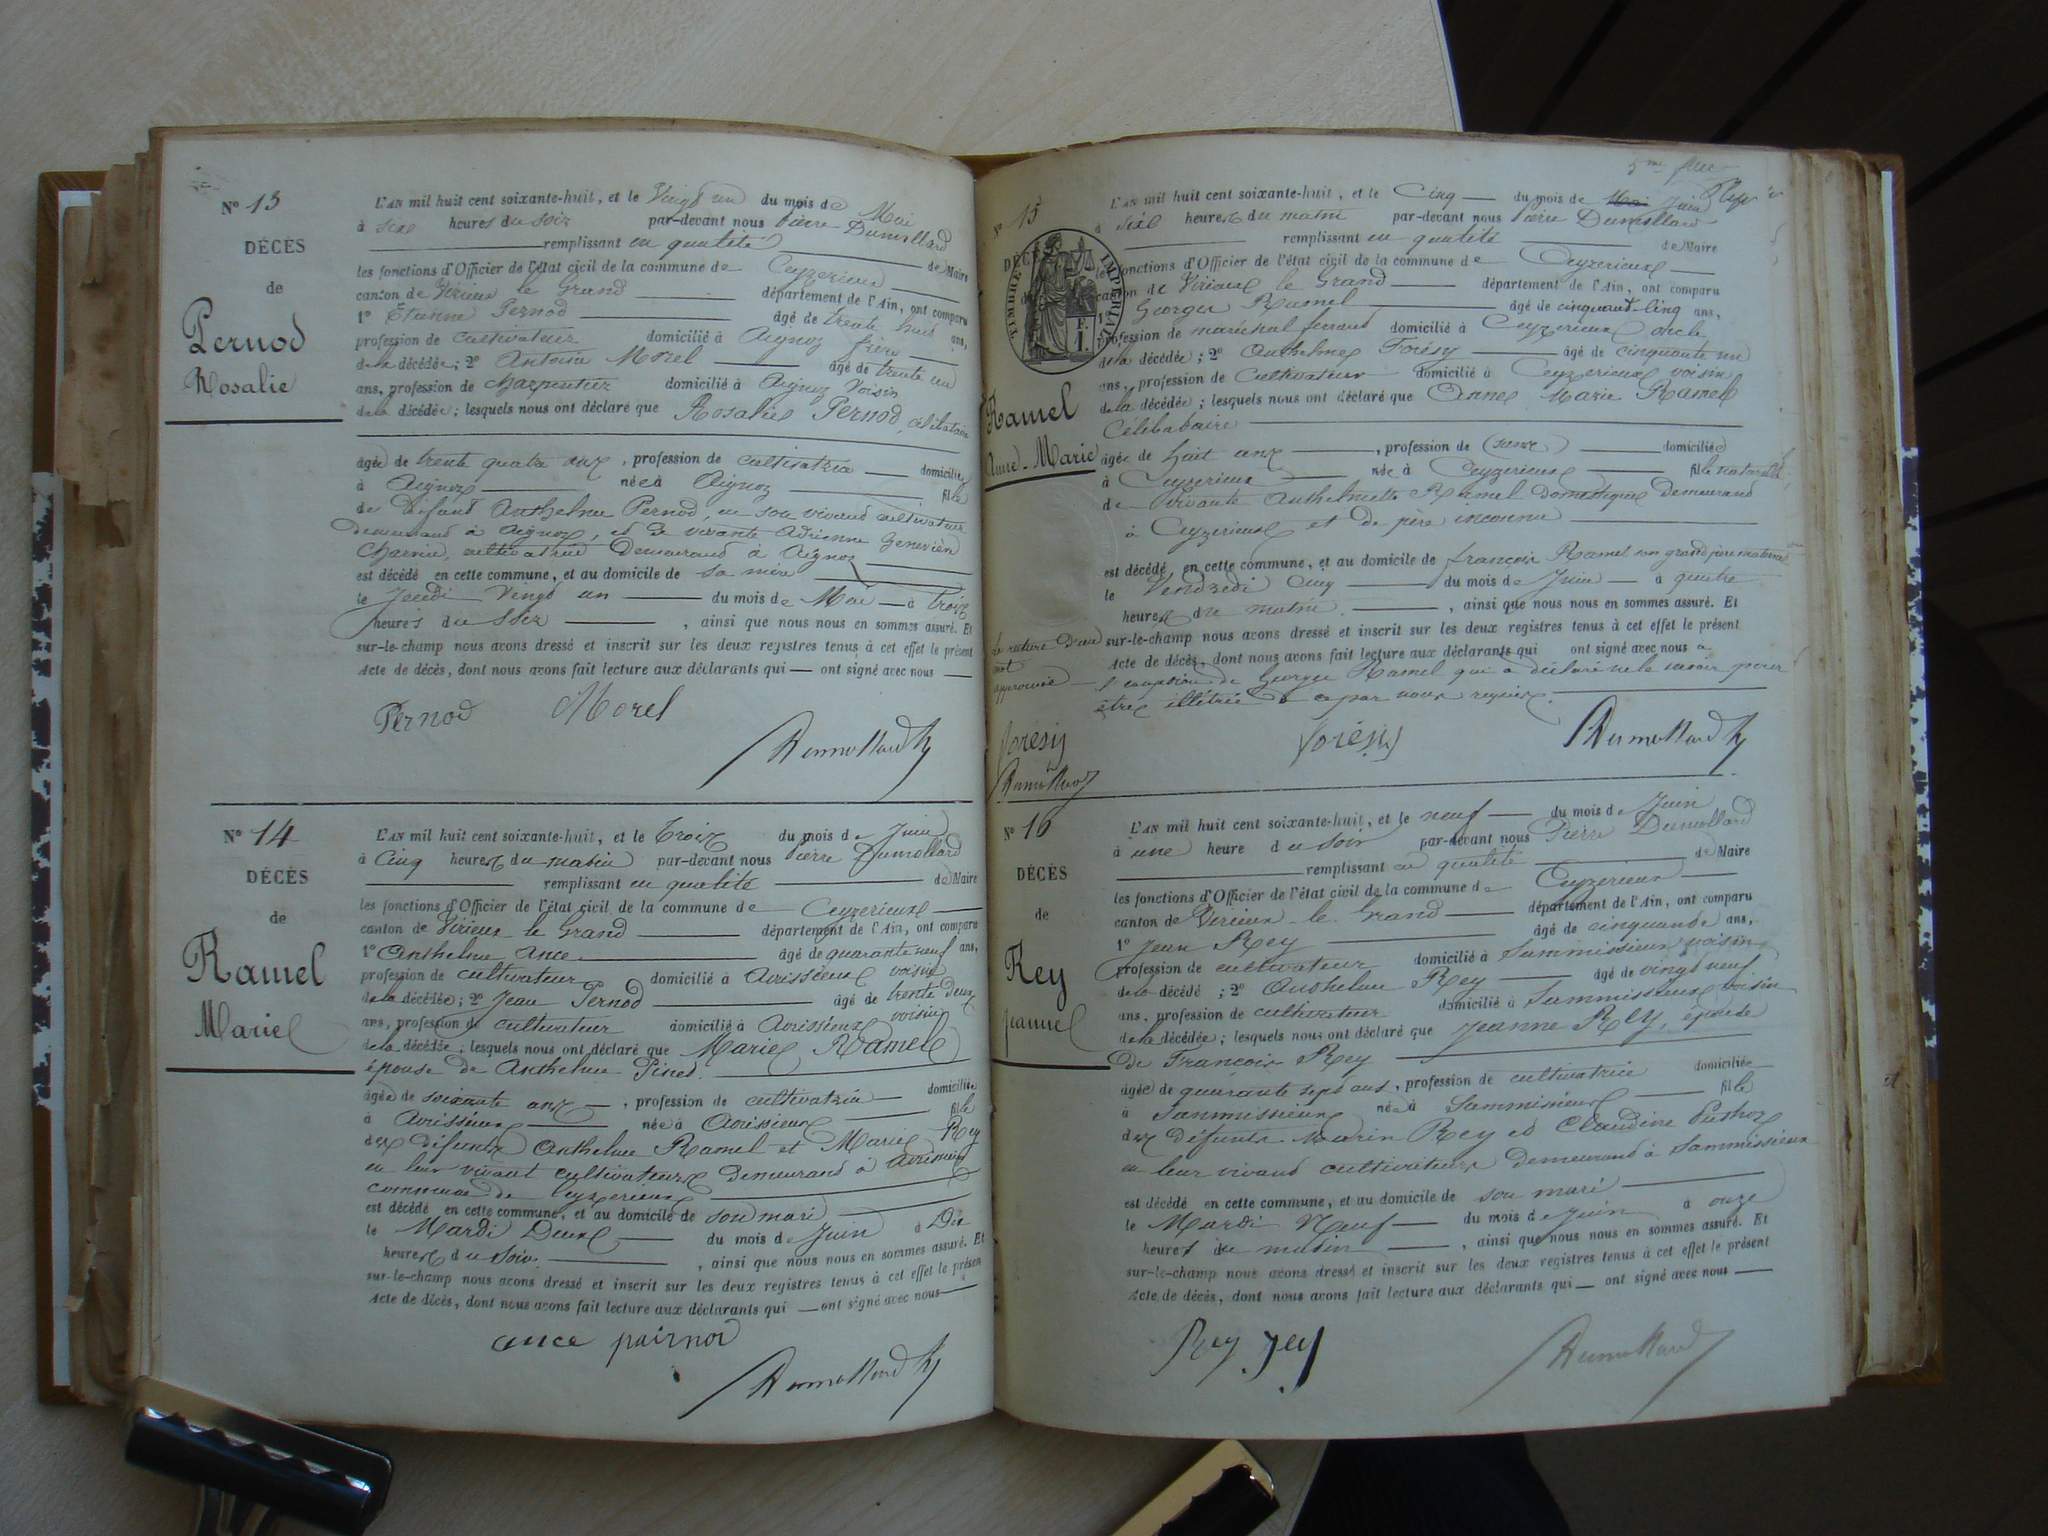 N° 13
DÉCÈS
de
Pernod
Rosalie
L'AN mil huit cent soixante-huit, et le Vingt un du mois de Mai
à six heures du soir par-devant nous Pierre Dumollard
remplissant en qualité de Maire
les fonctions d'Officier de l'état civil de la commune de Ceyzerieux
canton de Virieux le Grand département de l'Ain, ont comparu
1° Etienne Pernod âgé de trente huit ans,
profession de cultivateur domicilié à Aignoz frère
de la décédée; 2° Antoine Morel âgé de trente un
ans, profession de charpentier domicilié à Aignoz Voisin
de la décédée; lesquels nous ont déclaré que Rosalie Pernod, célibataire
âgée de trente quatre ans, profession de cultivatrice domiciliée
à Aignoz née à Aignoz fille
de défunt Anthelme Pernod, en son vivant cultivateur
demeurant à Aignoz, et de vivante Adrienne Geneviève
cultivatrice demeurant à Aignoz
est décédé en cette commune, et au domicile de sa mère
le Jeudi Vingt un du mois de Mai à trois
heures du soir, ainsi que nous nous en sommes assuré. Et
sur-le-champ nous avons dressé et inscrit sur les deux registres tenus à cet effet le présent
Acte de décès, dont nous avons fait lecture aux déclarants qui ont signé avec nous
Pernod Morel
Dumollard
N° 14
DÉCÈS
de
Ramel
Marie
L'AN mil huit cent soixante-huit, et le Trois du mois de Juin
à cinq heures du matin par-devant nous Pierre Dumollard
remplissant en qualité de Maire
les fonctions d'Officier de l'état civil de la commune de Ceyzerieux
canton de Virieux le Grand département de l'Ain, ont comparu
1° Anthelme Ance âgé de quarante neuf ans,
profession de cultivateur domicilié à Avrissieux voisin
de la décédée; 2° Jean Pernod âgé de trente deux
ans, profession de cultivateur domicilié à Avrissieux voisin
de la décédée; lesquels nous ont déclaré que Marie Ramel
épouse de Anthelme Pinet
âgée de soixante ans, profession de cultivatrice domiciliée
à Avrissieux née à Avrissieux fille
des défunts Anthelme Ramel et Marie Rey
en leur vivant cultivateurs demeurant à Avrissieux
commune de Ceyzerieux
est décédé en cette commune, et au domicile de son mari
le Mardi Deux du mois de Juin à Dix
heures du soir, ainsi que nous nous en sommes assuré. Et
sur-le-champ nous avons dressé et inscrit sur les deux registres tenus à cet effet le présent
Acte de décès, dont nous avons fait lecture aux déclarants qui ont signé avec nous
ance pairnod
Dumollard
5me
N° 15
DÉCÈS
TIMBRE IMPÉRIAL
F.
1.
Ramel
Anne-Marie
L'AN mil huit cent soixante-huit, et le Cinq du mois de Mai Juin
à six heures du matin par-devant nous Pierre Dumollard
remplissant en qualité de Maire
les fonctions d'Officier de l'état civil de la commune de Ceyzerieux
canton de Virieux le Grand département de l'Ain, ont comparu
1° George Ramel âgé de cinquante-cinq ans,
profession de maréchal ferrant domicilié à Ceyzerieux oncle
de la décédée; 2° Anthelme Forésy âgé de cinquante un
ans, profession de Cultivateur domicilié à Ceyzerieux voisin
de la décédée; lesquels nous ont déclaré que Anne Marie Ramel
Célibataire
âgée de huit ans, profession de domiciliée
à Ceyzerieux née à Ceyzerieux fille naturelle
de vivante Anthelmette Ramel domestique demeurant
à Ceyzerieux et de père inconnu
est décédé en cette commune, et au domicile de françois Ramel son grand père maternel
le Vendredi Cinq du mois de Juin à quatre
heures du matin, ainsi que nous nous en sommes assuré. Et
sur-le-champ nous avons dressé et inscrit sur les deux registres tenus à cet effet le présent
Acte de décès, dont nous avons fait lecture aux déclarants qui ont signé avec nous a
l'exception de George Ramel qui a déclaré ne le savoir pour
être illétré à ce par nous requis.
La rature d'un
mot
approuvée
forésy
Dumollard
forésy
Dumollard
N° 16
DÉCÈS
de
Rey
jeanne
L'AN mil huit cent soixante-huit, et le neuf du mois de Juin
à une heure du soir par-devant nous Pierre Dumollard
remplissant en qualité de Maire
les fonctions d'Officier de l'état civil de la commune de Ceyzerieux
canton de Virieux le Grand département de l'Ain, ont comparu
1° Jean Rey âgé de cinquante ans,
profession de cultivateur domicilié à Sammissieux voisin
de la décédé; 2° Anthelme Rey âgé de vingt neuf
ans, profession de cultivateur domicilié à Sammissieux voisin
de la décédée; lesquels nous ont déclaré que Jeanne Rey, épouse
de François Rey
âgée de quarante sept ans, profession de cultivatrice domiciliée
à Sammissieux née à Sammissieux fille
des défunts Rey et Claudine
en leur vivant cultivateurs demeurant à Sammissieux
est décédé en cette commune, et au domicile de son mari
le Mardi Neuf du mois de Juin à onze
heures du matin, ainsi que nous nous en sommes assuré. Et
sur-le-champ nous avons dressé et inscrit sur les deux registres tenus à cet effet le présent
Acte de décès, dont nous avons fait lecture aux déclarants qui ont signé avec nous
Rey Rey
Dumollard